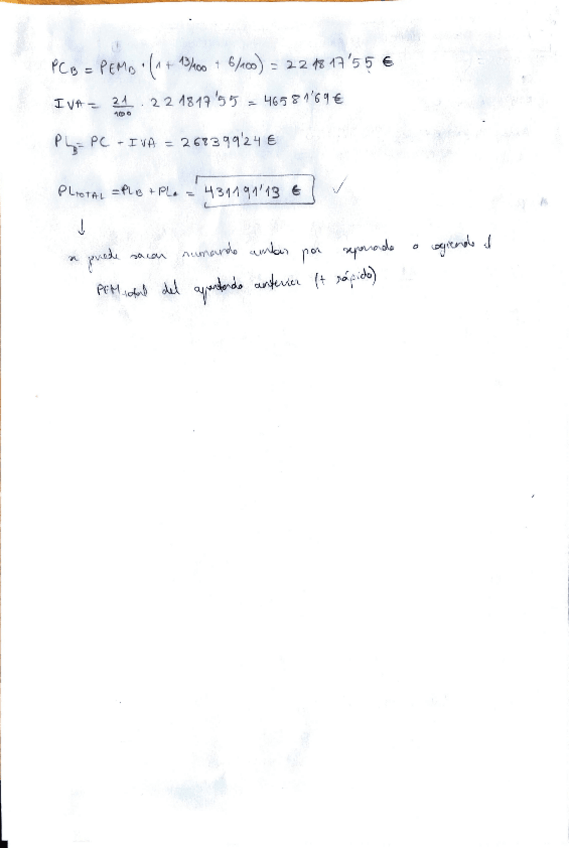 PC_B = PEM_B · (1 + 13/100 + 6/100) = 221817'55 €
IVA = 21/100 · 221817'55 = 46581'69 €
PL_B = PC + IVA = 268399'24 €
PL_TOTAL = PL_B + PL_A = 431191'13 € ✓
↓
se puede sacar sumando ambas por separado o cogiendo el
PEM_total del apartado anterior (+ rápido)